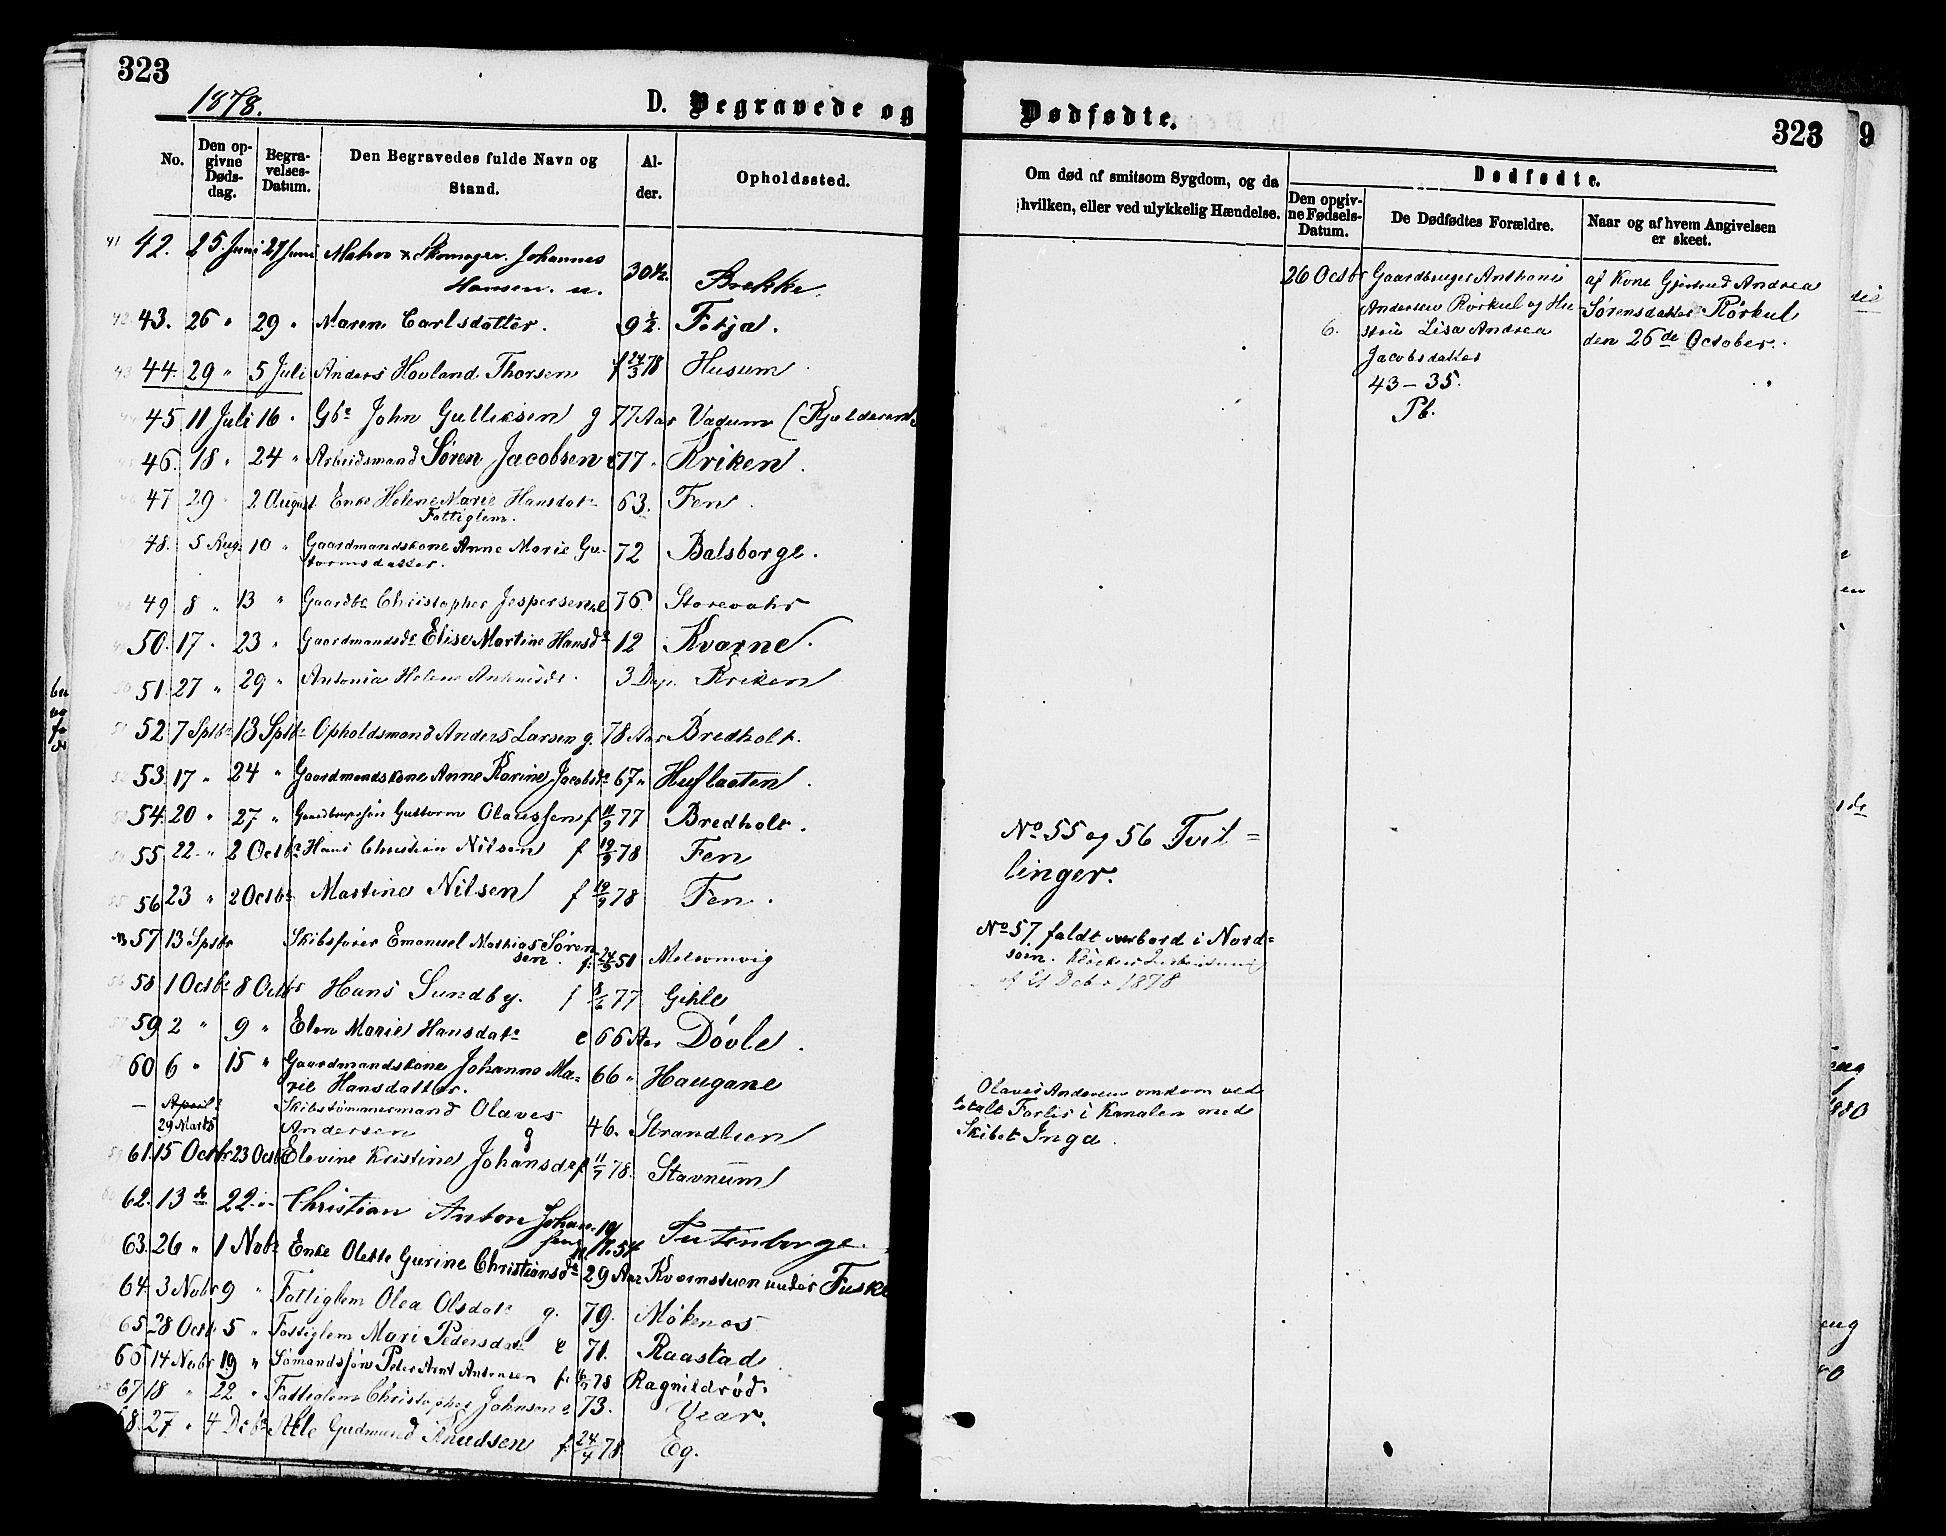 323
1878.
D. Begravede og
No.
Den opgivne Dødsdag.
Begravelses-Datum.
Den Begravedes fulde Navn og Stand.
Alder.
Opholdssted.
42. 25 Juni 27 Juni Matros & Skomager Johannes
Hansen. u. 30 Brekke.
43. 26 " 29 " Maren Carlsdatter. 9 1/2 Fokja.
44. 29 " 5 Juli Anders Hovland Thorsen f 24/3 78 Husum
45 11 Juli 16 " Gbr John Gulliksen g 77 Aar Vadum (Kjelderen)
46. 18 " 24 " Arbeidsmand Søren Jacobsen e 77 " Kriken.
47 29 " 2 August Enke Helene Marie Hansdatr 63. Fen.
Fattiglem.
48. 5 Aug. 10 " Gaardmandskone Anne Marie Gu-
tormsdatter. 72 Balsborge.
49 8 " 13 " Gaardbr Christopher Jespersen e 76. Storevahr
50. 17 " 23 " Gaardmandsdr Elise Martine Hansdr 12 Kvarne.
51. 27 " 29 " Antonia Helene 3 Dage Kriken
52. 7 Sptbr 13 Sptbr Opholdsmand Anders Larsen g. 78 Aar Bredholt.
53. 17 " 24 " Gaardmandskone Anne Karine Jacobsdr 67 " Huflaaten.
54. 20 " 27 " Guttorm Olaussen f 11/9 77 Bredholt.
55 22 " 2 Octbr Hans Christian Nilsen f 19/9 78 Fen
56 23 " 2 Octbr Martine Nilsen f 19/9 78 Fen.
57. 13 Sptbr Skibsfører Emanuel Mathias Søren-
sen. f. 51 Melsomvig
58 1 Octbr 8 Octbr Hans Sundby. f 77 Gihle
59 2 " 9 " Elen Marie Hansdatr e 66 Aar Døvle.
60 6 " 15 " Gaardmandskone Johanne Ma-
rie Hansdatter. 66 " Haugane
— April
29 Marts Skibstømmermand Olaves
Andersen g 46. Strandteen
61. 15 Octbr 23 Octbr Elevine Kristine Johansdr f 11/7 78. Stavnum
62. 13 de 22. Christian Anton Johan-
sen 54 Tutenborge.
63. 26 " 1 Nobr Enke Olette Gurine Christiansdr 29 Aar Kværnstuen under Fuske
64. 3 Nobr 9 " Fattiglem Olea Olsdatr g. 79. Møkenæs
65 28 Octbr 5 " Fattiglem Mari Pedersdatr e 71. Raastad
66 14 Nobr 19 " Sømandssøn Peder Arnt Andersen f. 78 Ragnildrød.
67 18 " 22 " Fattiglem Christopher Johnsen e 73. Vear.
68. 27. " 4 Decbr Atle Gudmund Knudsen f. 24/4 78 Eg.
Dødfødte.
323
9
Om død af smitsom Sygdom, og da hvilken, eller ved ulykkelig Hændelse.
Dødfødte.
Den opgivne Fødsels-Datum.
De Dødfødtes Forældre.
Naar og af hvem Angivelsen er skeet.
26 Octbr Gaardbruger Anthoni
Andersen Rørkul og Hu-
6. stru Lisa Andrea
Jacobsdatter
43 – 35.
Pb.
af Kone Gjertrud Andrea
Sørensdatter Rørkul
den 26de October.
No 55 og 56 Tvil=
linger.
No 57 faldt overbord i Nord=
søen.
af 21 Decbr 1878
Olaves Andersen omkom ved
totalt Forlis i Kanalen med
Skibet Inga.